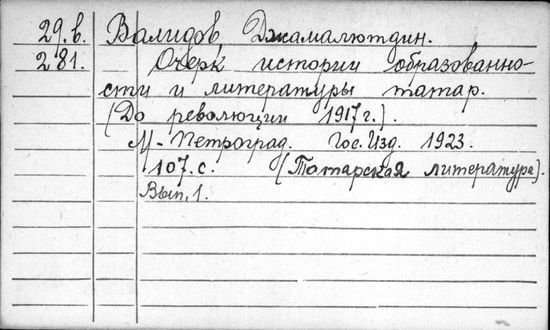 29.в. Валидов Джамалютдин.
281. Очерк истории образованно-
сти и литературы татар.
(До революции 1917 г.).
М-Петроград. Гос. Изд. 1923.
107. с. (Татарская литература).
Вып. 1.